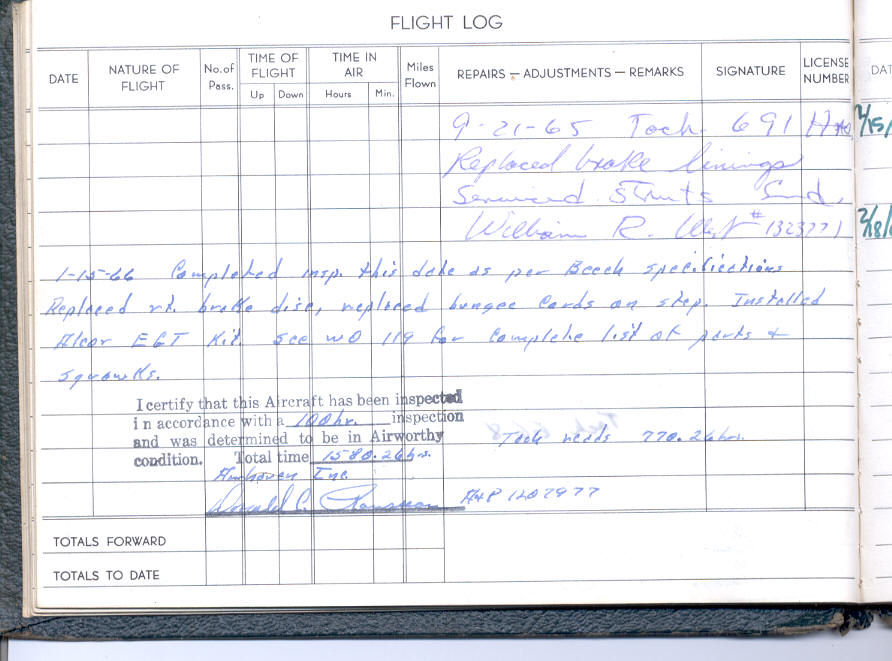 FLIGHT LOG
DATE
NATURE OF FLIGHT
No. of Pass.
TIME OF FLIGHT
Up Down
TIME IN AIR
Hours Min.
Miles Flown
REPAIRS — ADJUSTMENTS — REMARKS
SIGNATURE
LICENSE NUMBER
DAT
9-21-65 Tach. 691 Hrs
2/15/
Replaced brake linings
Serviced struts
William R. West # 1323771
2/18/
1-15-66 Completed insp. this date as per Beech specifications
Replaced rt. brake disc, replaced bungee cords on step. Installed
Alcor EGT Kit. See WO 119 for complete list of parts &
squawks.
I certify that this Aircraft has been inspected
in accordance with a 100 hr. inspection
and was determined to be in Airworthy
Tach reads 770.26 hrs.
condition. Total time 1580.26 hrs.
Inc.
Donald C.
A&P 1207977
TOTALS FORWARD
TOTALS TO DATE